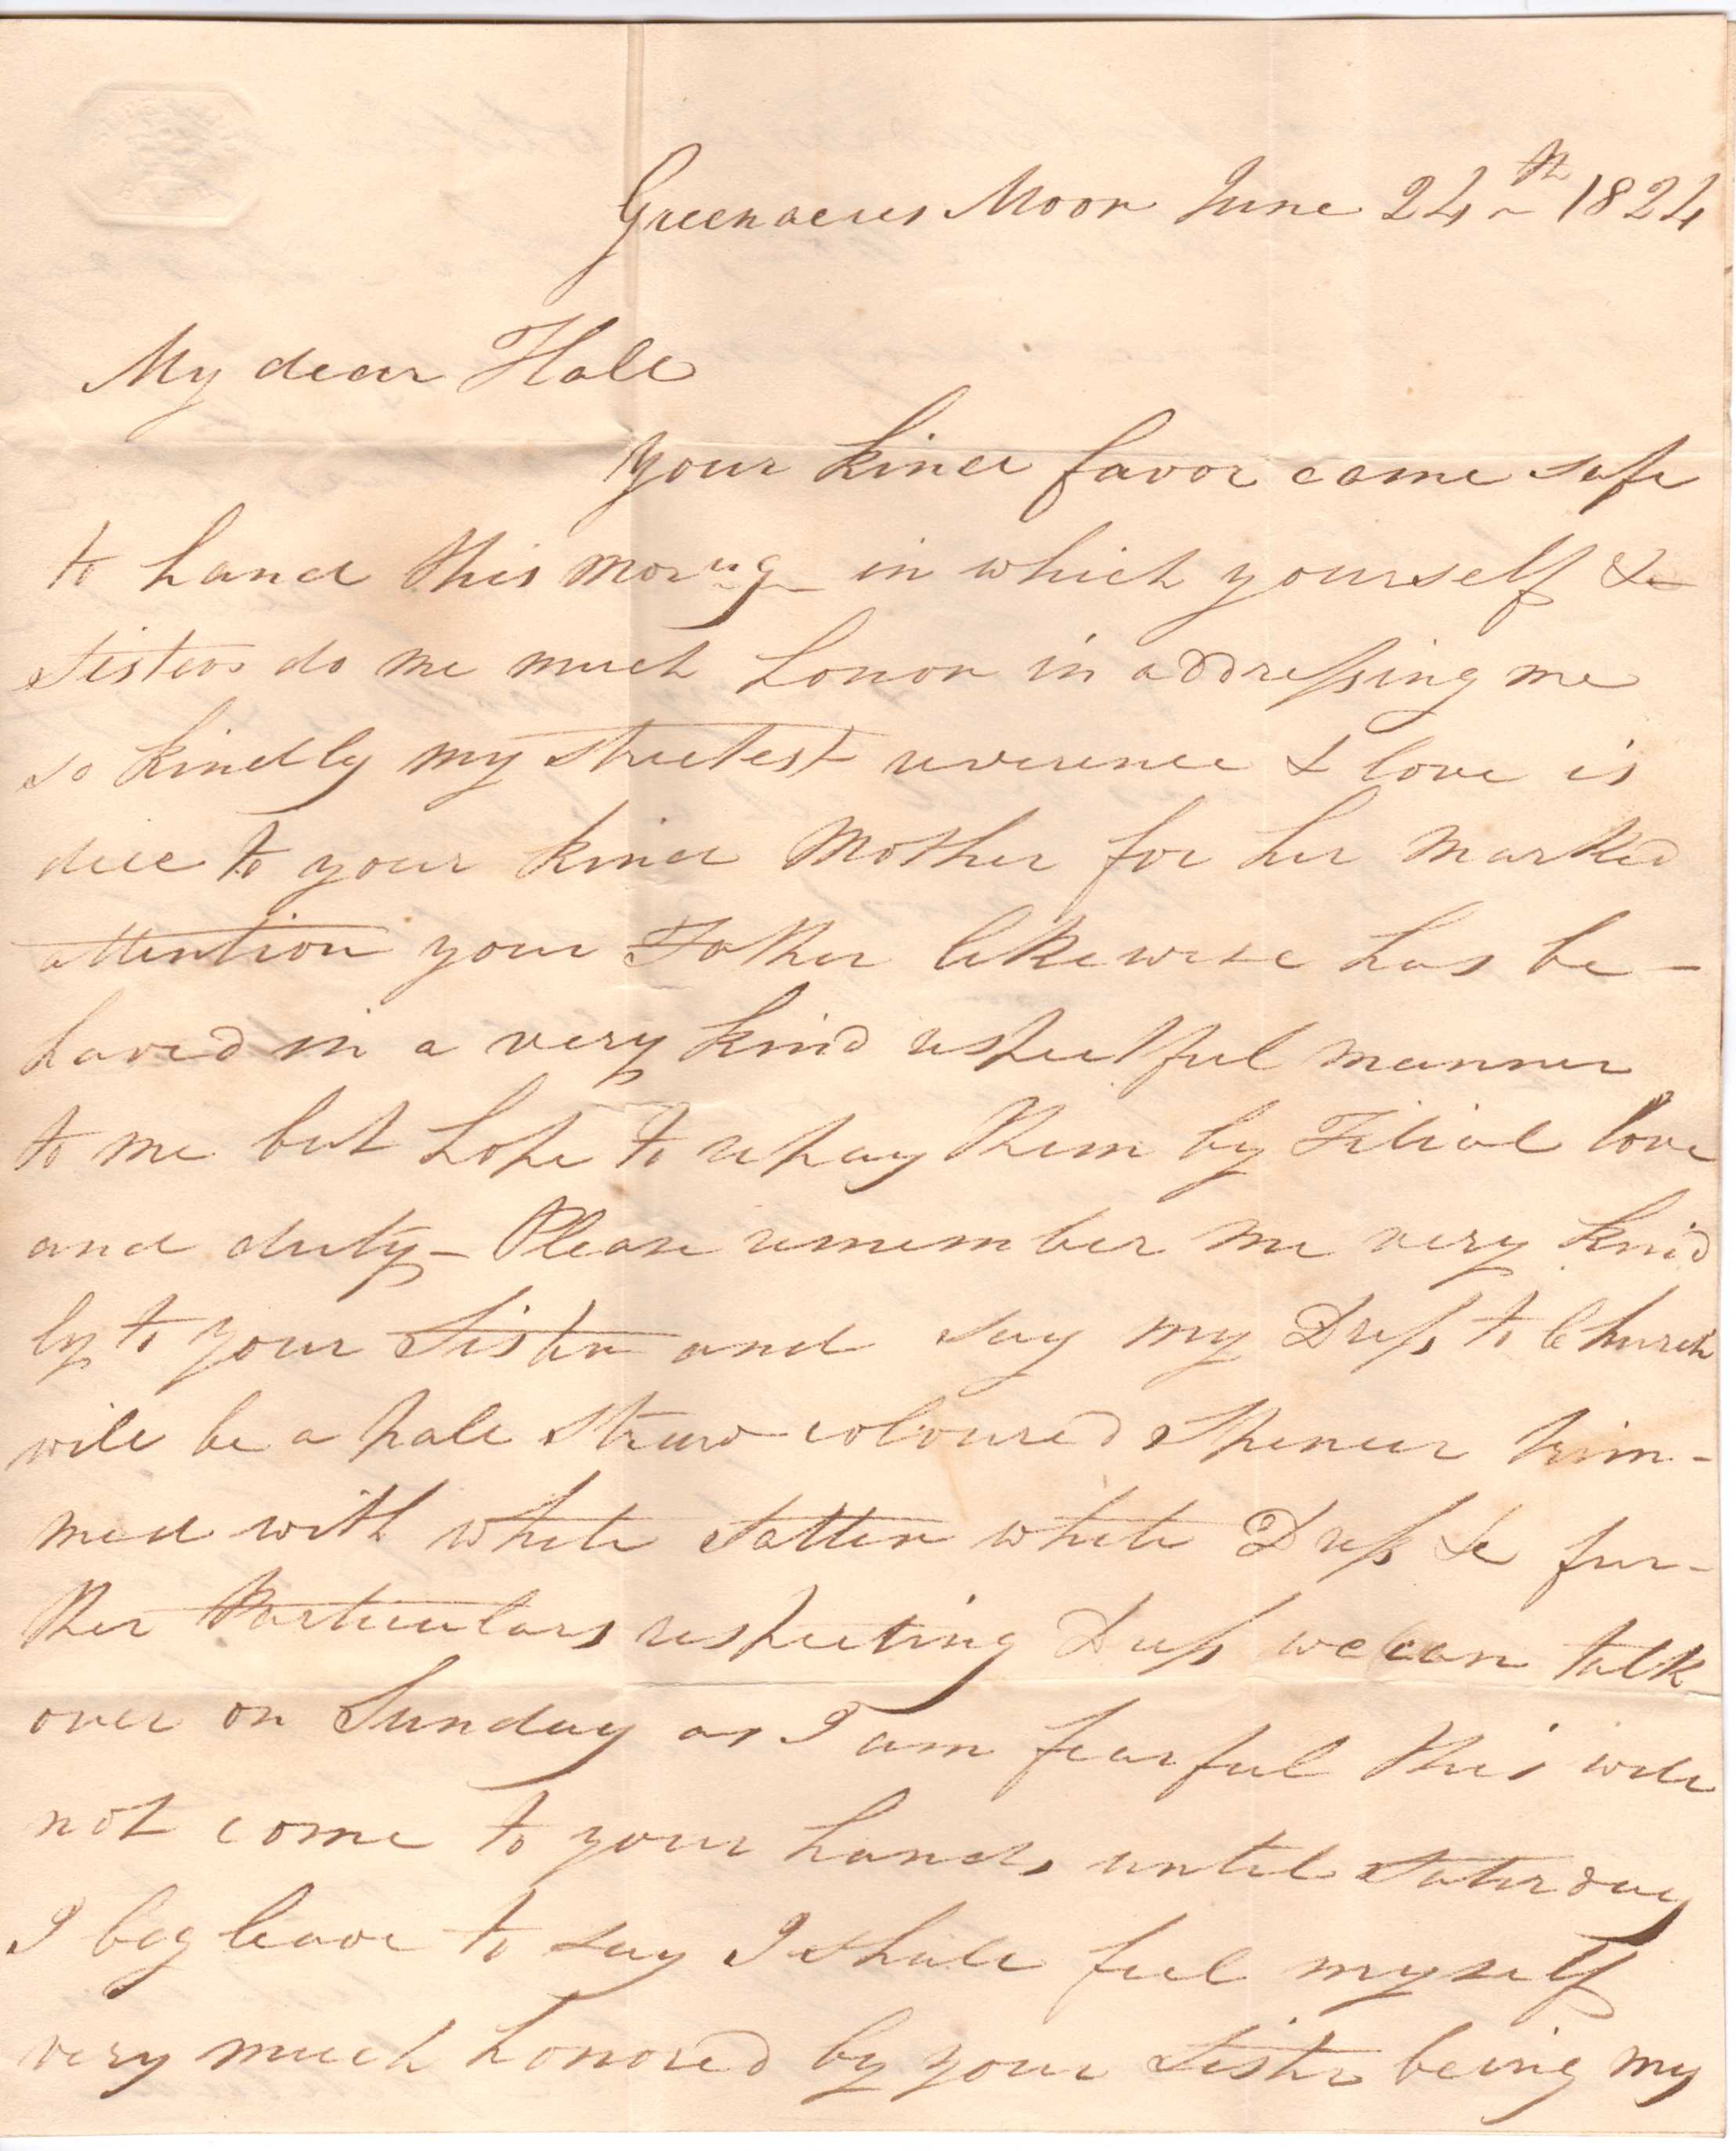 Greenacres Moor June 24th 1824
My dear Hall
your kind favor came safe
to hand this morng in which yourself &
Sisters do me much honor in addressing me
so kindly my strictest reverence & love is
due to your kind Mother for her marked
attention your Father likewise has be-
haved in a very kind respectful manner
to me but hope to repay them by Filial love
and duty - Please remember me very kind
ly to your Sister and say my Dress to Church
will be a pale straw coloured Spencer trim-
med with white Satten white Dress &c fur-
ther Particulars respecting Dress we can talk
over on Sunday as I am fearful this will
not come to your hands until Saturday
I beg leave to say I shall feel myself
very much honored by your Sister being my